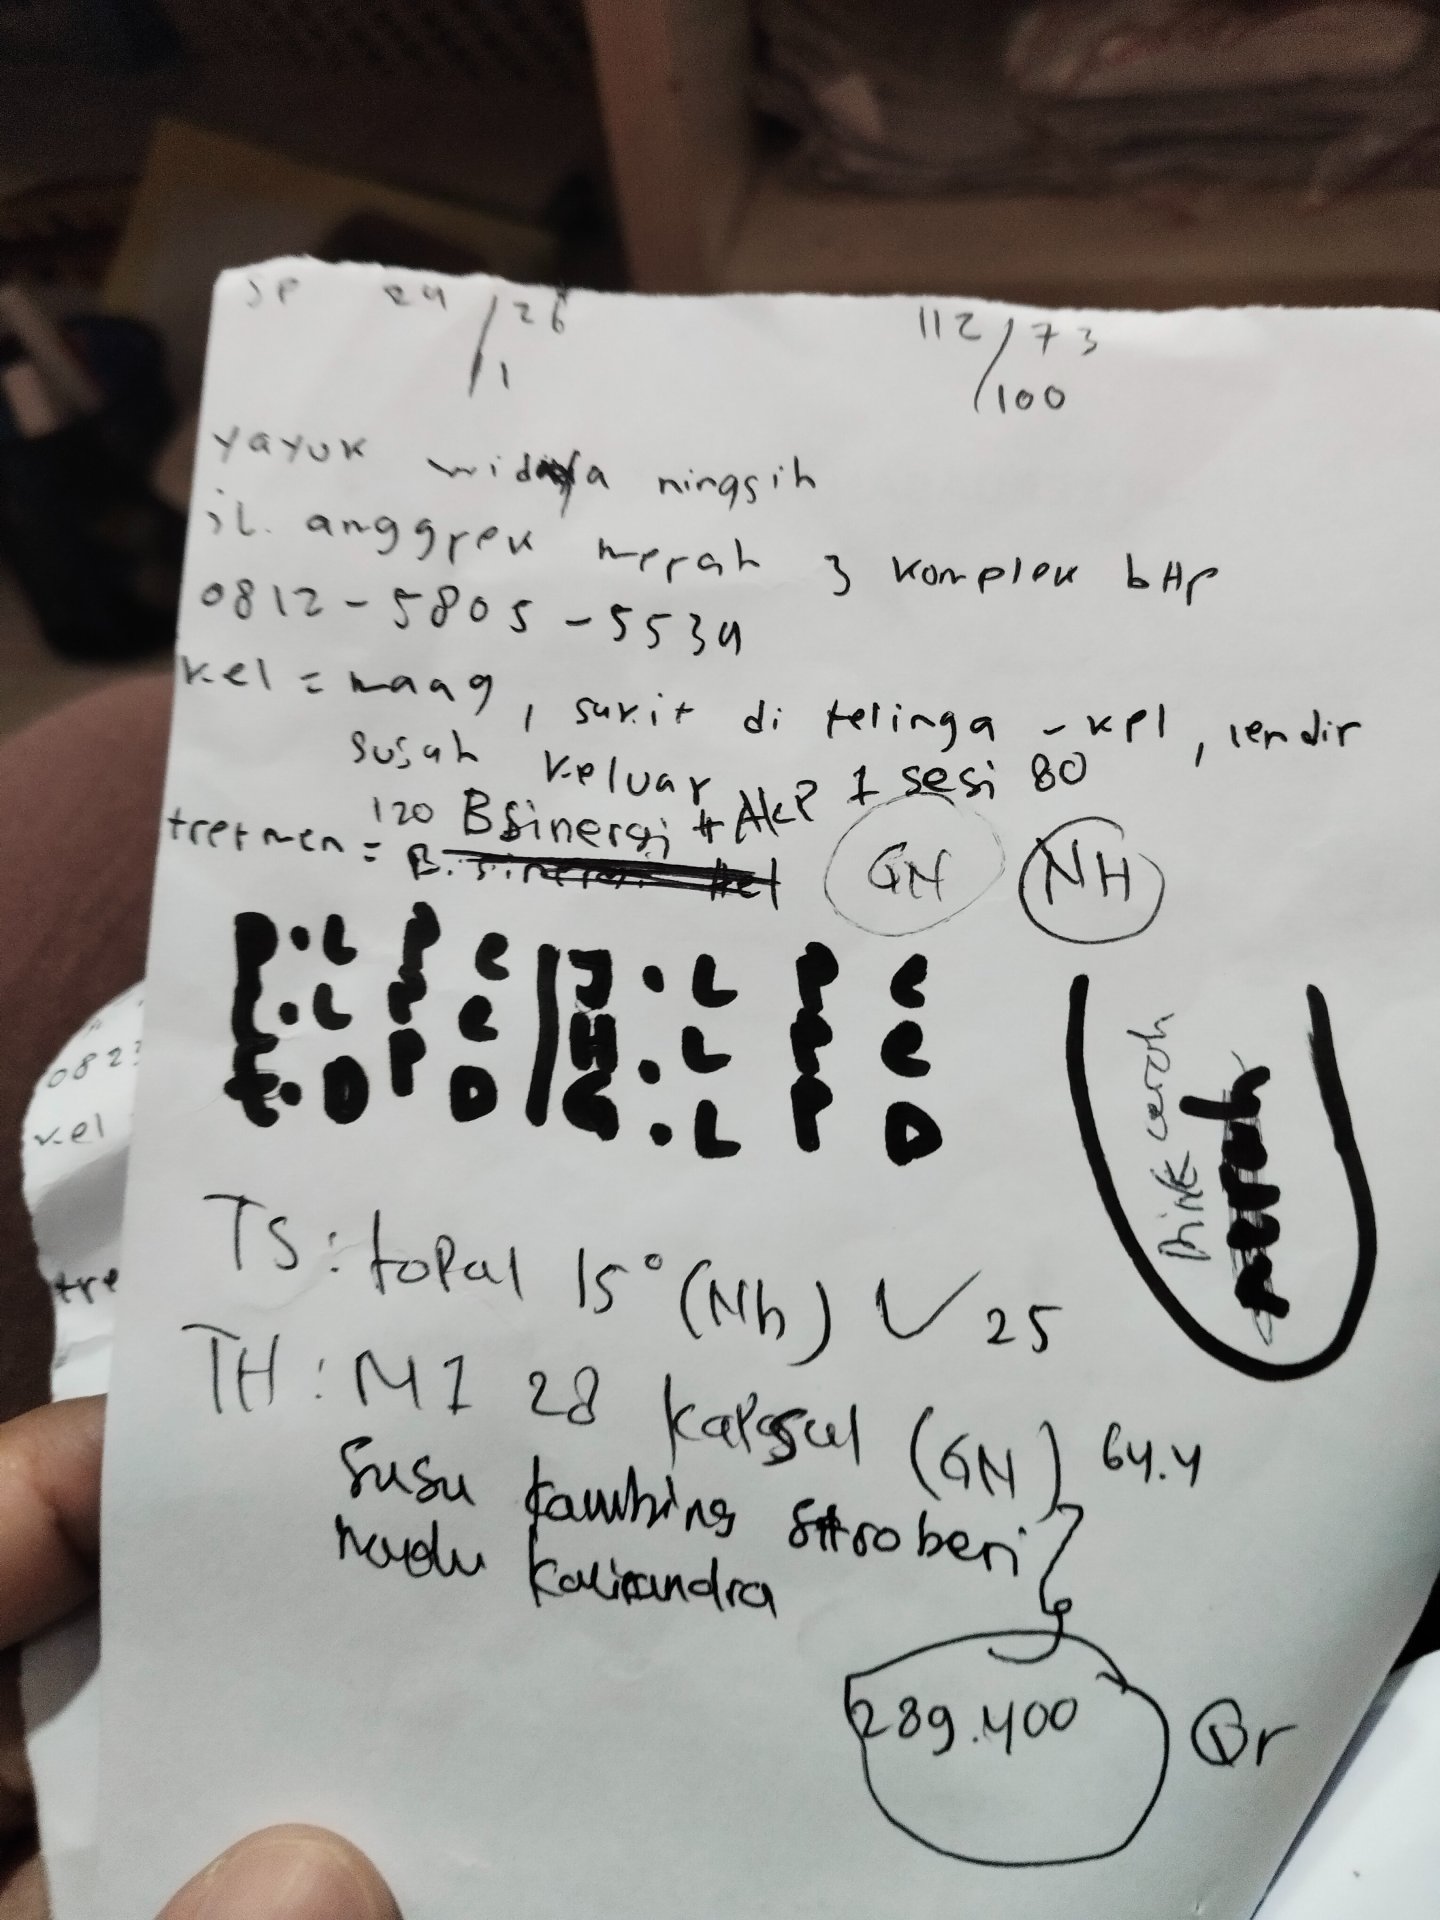 JP 24/26
/1
112/73
/100
yayuk widya ningsih
jl. anggrek merah 3 komplek bHp
0812-5805-5534
kel = maag, sakit di telinga - kpl, lendir
susah keluar
1 sesi 80
tretmen = 120 B sinergi + AKP
GN NH
P.L P C | J.L P C
L.L P C | H.L P C
E.D P D | G.L P D
Pink cerah
merah
TS: topal 15° (Nh) ✓ 25
TH: M1 28 kapsul (GN) 64.4
Susu kambing stroberi
Madu kaliandra
289.400
Qr
082
kel
tre